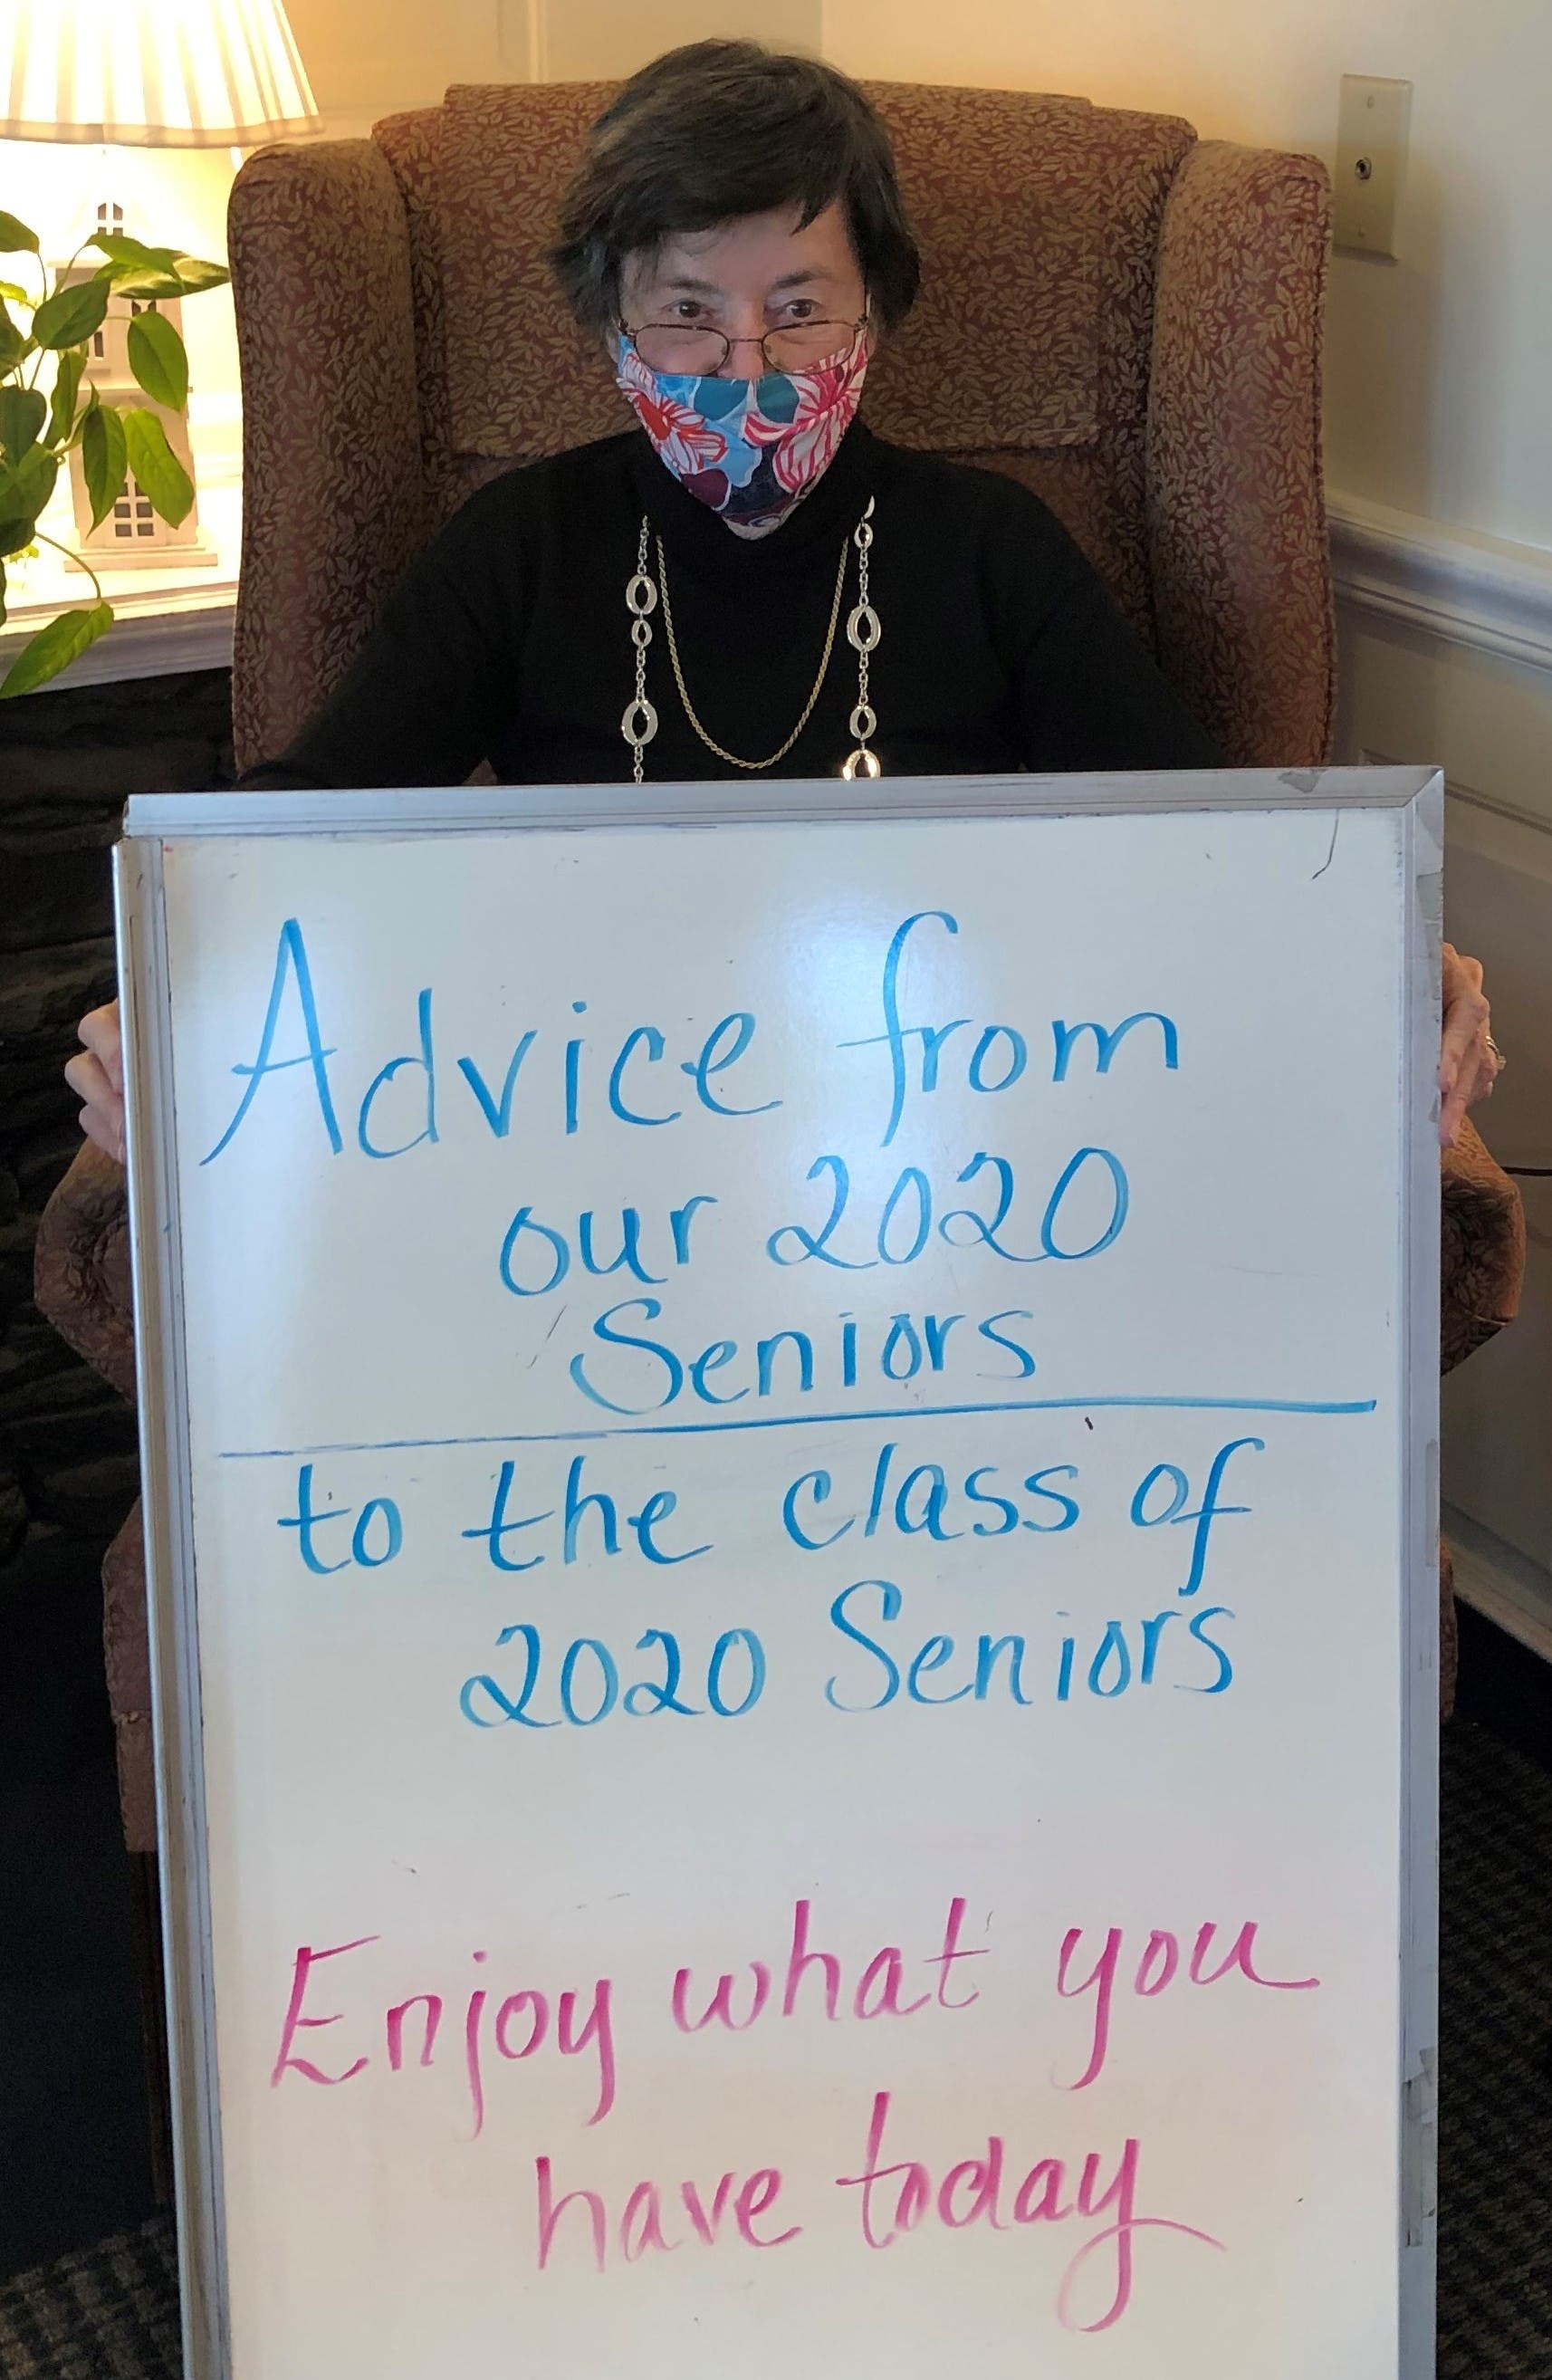 Advice from
our 2020
Seniors
to the class of
2020 Seniors
Enjoy what you
have today